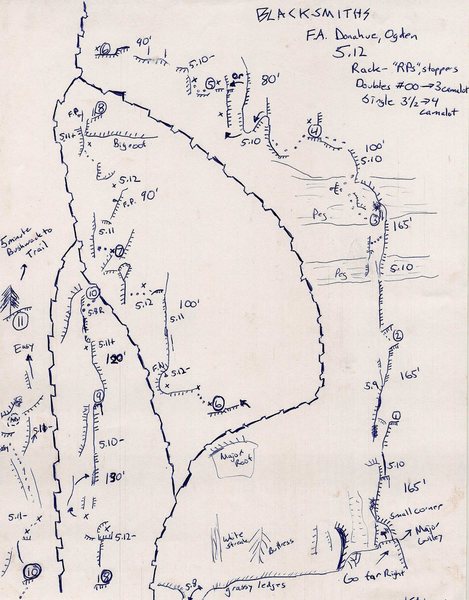 BLACKSMITHS
F.A. Donahue, Ogden
5.12
Rack - "RPs", stoppers
Doubles #00 → 3 camalot
Single 3½ → 4
camalot
6
90'
5.10-
5
80'
5.10
4
100'
5.10
3
165'
Peg
Peg
5.10
2
5.9
165'
1
5.10
165'
small corner
Major
Gulley
Go far Right
grassy ledges
5.8
White
streak
Buttress
Major
Roof
8
F.P.
5.11+
Big roof
5.12
F.P.
90'
5.11
7
5.12
100'
5.11
5.12-
6
5 minute
Bushwack to
Trail
11
Easy
10
5.8R
5.11+
9
5.10-
5.12-
5.11-
10